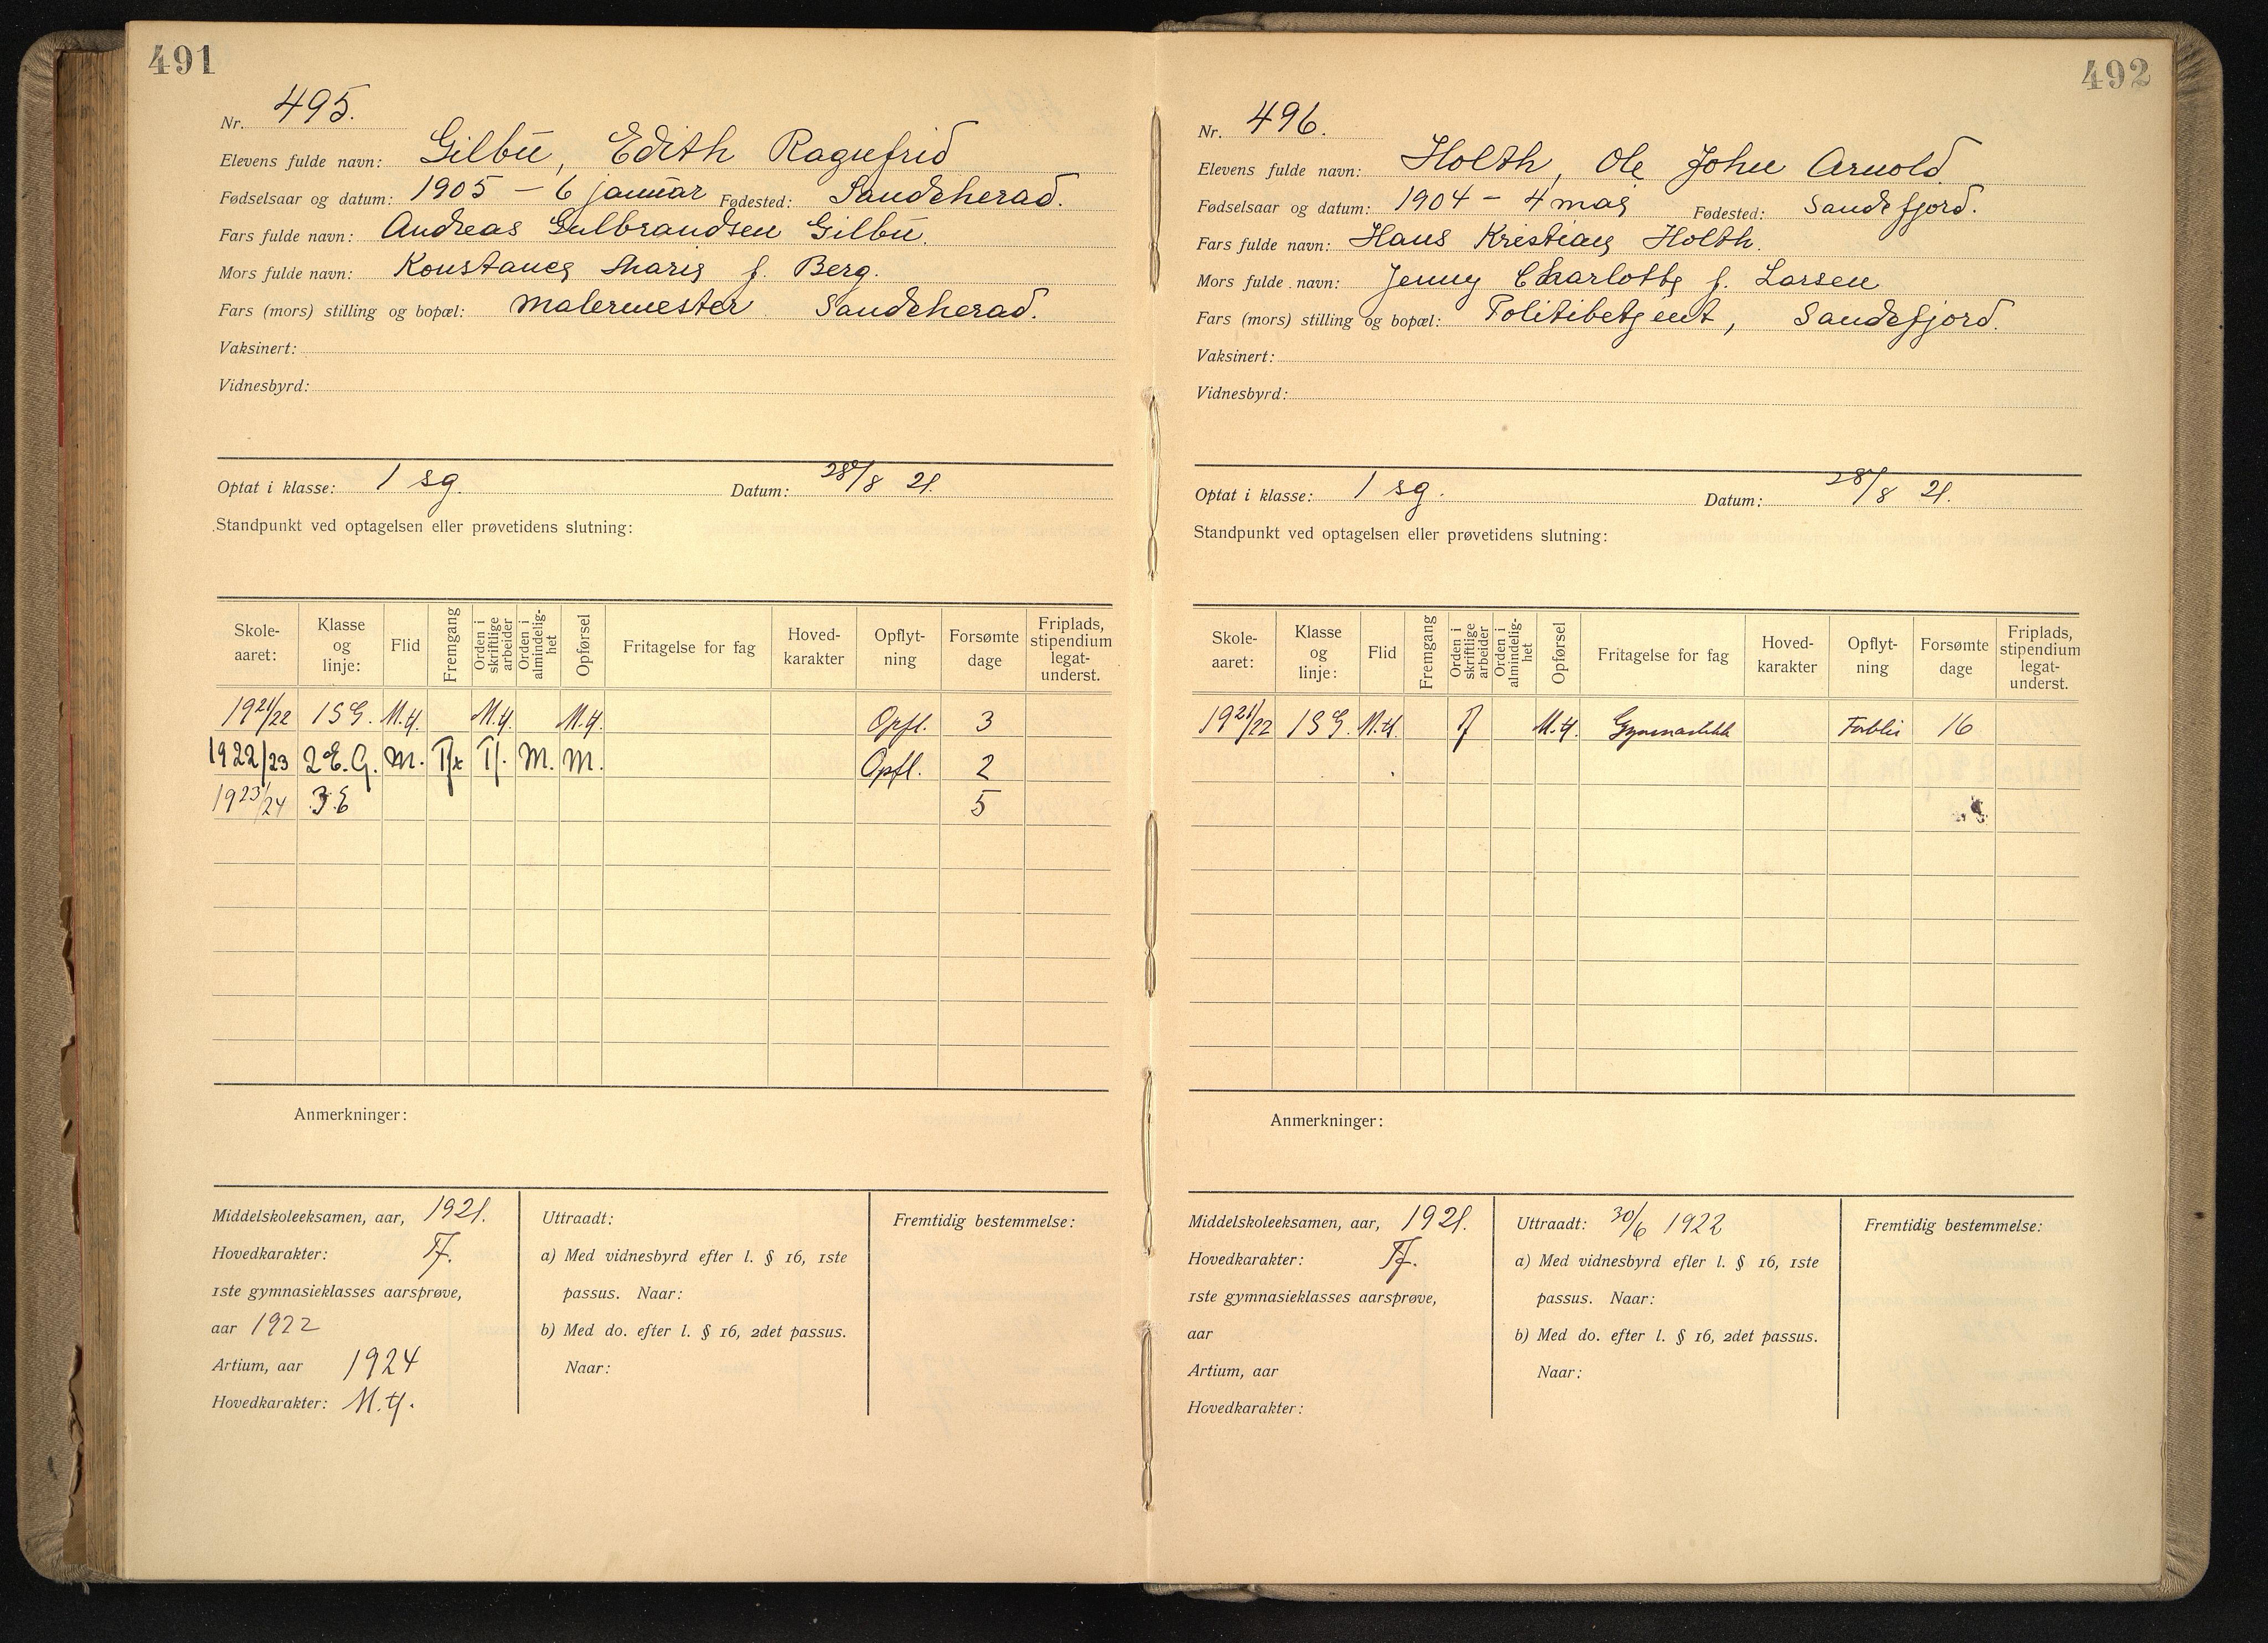 491
Nr. 495.
Elevens fulde navn: Gilbu, Edith Ragnfrid
Fødselsaar og datum: 1905 – 6 januar Fødested: Sandeherad.
Fars fulde navn: Andreas Gulbrandsen Gilbu.
Mors fulde navn: Konstance Marie f. Berg.
Fars (mors) stilling og bopæl: Malermester Sandeherad.
Vaksinert:
Vidnesbyrd:
Optat i klasse: 1 sg. Datum: 28/8 21.
Standpunkt ved optagelsen eller prøvetidens slutning:
Skole-aaret: Klasse og linje: Flid Fremgang Orden i skriftlige arbeider Orden i almindelig-het Opførsel Fritagelse for fag Hoved-karakter Opflyt-ning Forsømte dage Friplads, stipendium legat-underst.
1921/22 1SG. M.tf. M.tf. M.tf. Opfl. 3
1922/23 2E.G. M. Tfx Tf. M. M. Opfl. 2
1923/24 3.E 5
Anmerkninger:
Middelskoleeksamen, aar, 1921.
Hovedkarakter: Tf.
1ste gymnasieklasses aarsprøve,
aar 1922
Artium, aar 1924
Hovedkarakter: M.tf.
Uttraadt:
a) Med vidnesbyrd efter l. § 16, 1ste
passus. Naar:
b) Med do. efter l. § 16, 2det passus.
Naar:
Fremtidig bestemmelse:
492
Nr. 496.
Elevens fulde navn: Holth, Ole John Arnold.
Fødselsaar og datum: 1904 – 4 mai Fødested: Sandefjord.
Fars fulde navn: Hans Kristian Holth.
Mors fulde navn: Jenny Charlotte f. Larsen
Fars (mors) stilling og bopæl: Politibetjent, Sandefjord.
Vaksinert:
Vidnesbyrd:
Optat i klasse: 1 sg. Datum: 28/8 21.
Standpunkt ved optagelsen eller prøvetidens slutning:
Skole-aaret: Klasse og linje: Flid Fremgang Orden i skriftlige arbeider Orden i almindelig-het Opførsel Fritagelse for fag Hoved-karakter Opflyt-ning Forsømte dage Friplads, stipendium legat-underst.
1921/22 1SG. M.tf. Tf M.tf. Gymnastikk Forblir 16
Anmerkninger:
Middelskoleeksamen, aar, 1921.
Hovedkarakter: Tf.
1ste gymnasieklasses aarsprøve,
aar
Artium, aar
Hovedkarakter:
Uttraadt: 30/6 1922
a) Med vidnesbyrd efler l. § 16, 1ste
passus. Naar:
b) Med do. efter l. § 16, 2det passus.
Naar:
Fremtidig bestemmelse: